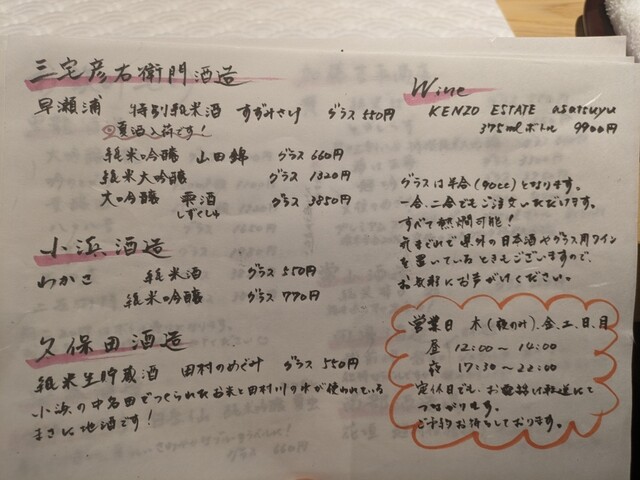 三宅彦右衛門酒造
早瀬浦 特別純米酒 すずみさけ グラス 550円
夏酒入荷です!
純米吟醸 山田錦 グラス 660円
純米大吟醸 グラス 1320円
大吟醸 雫酒 グラス 3850円
しずくしゅ
小浜酒造
わかさ 純米酒 グラス 550円
純米吟醸 グラス 770円
久保田酒造
純米生貯蔵酒 田村のめぐみ グラス 550円
小浜の中名田でつくられたお米と田村川の水が使われている
まさに地酒です!
Wine
KENZO ESTATE asatsuyu
375mlボトル 9900円
グラスは半合(90cc)となります。
一合、二合でもご注文いただけます。
すべて熱燗可能!
気まぐれで県外の日本酒やグラス用ワイン
を置いているときもございますので、
お気軽にお声がけください。
営業日 木(夜のみ)、金、土、日、月
昼 12:00〜14:00
夜 17:30〜22:00
定休日でも、お電話は転送にて
つながります。
ご予約お待ちしております。